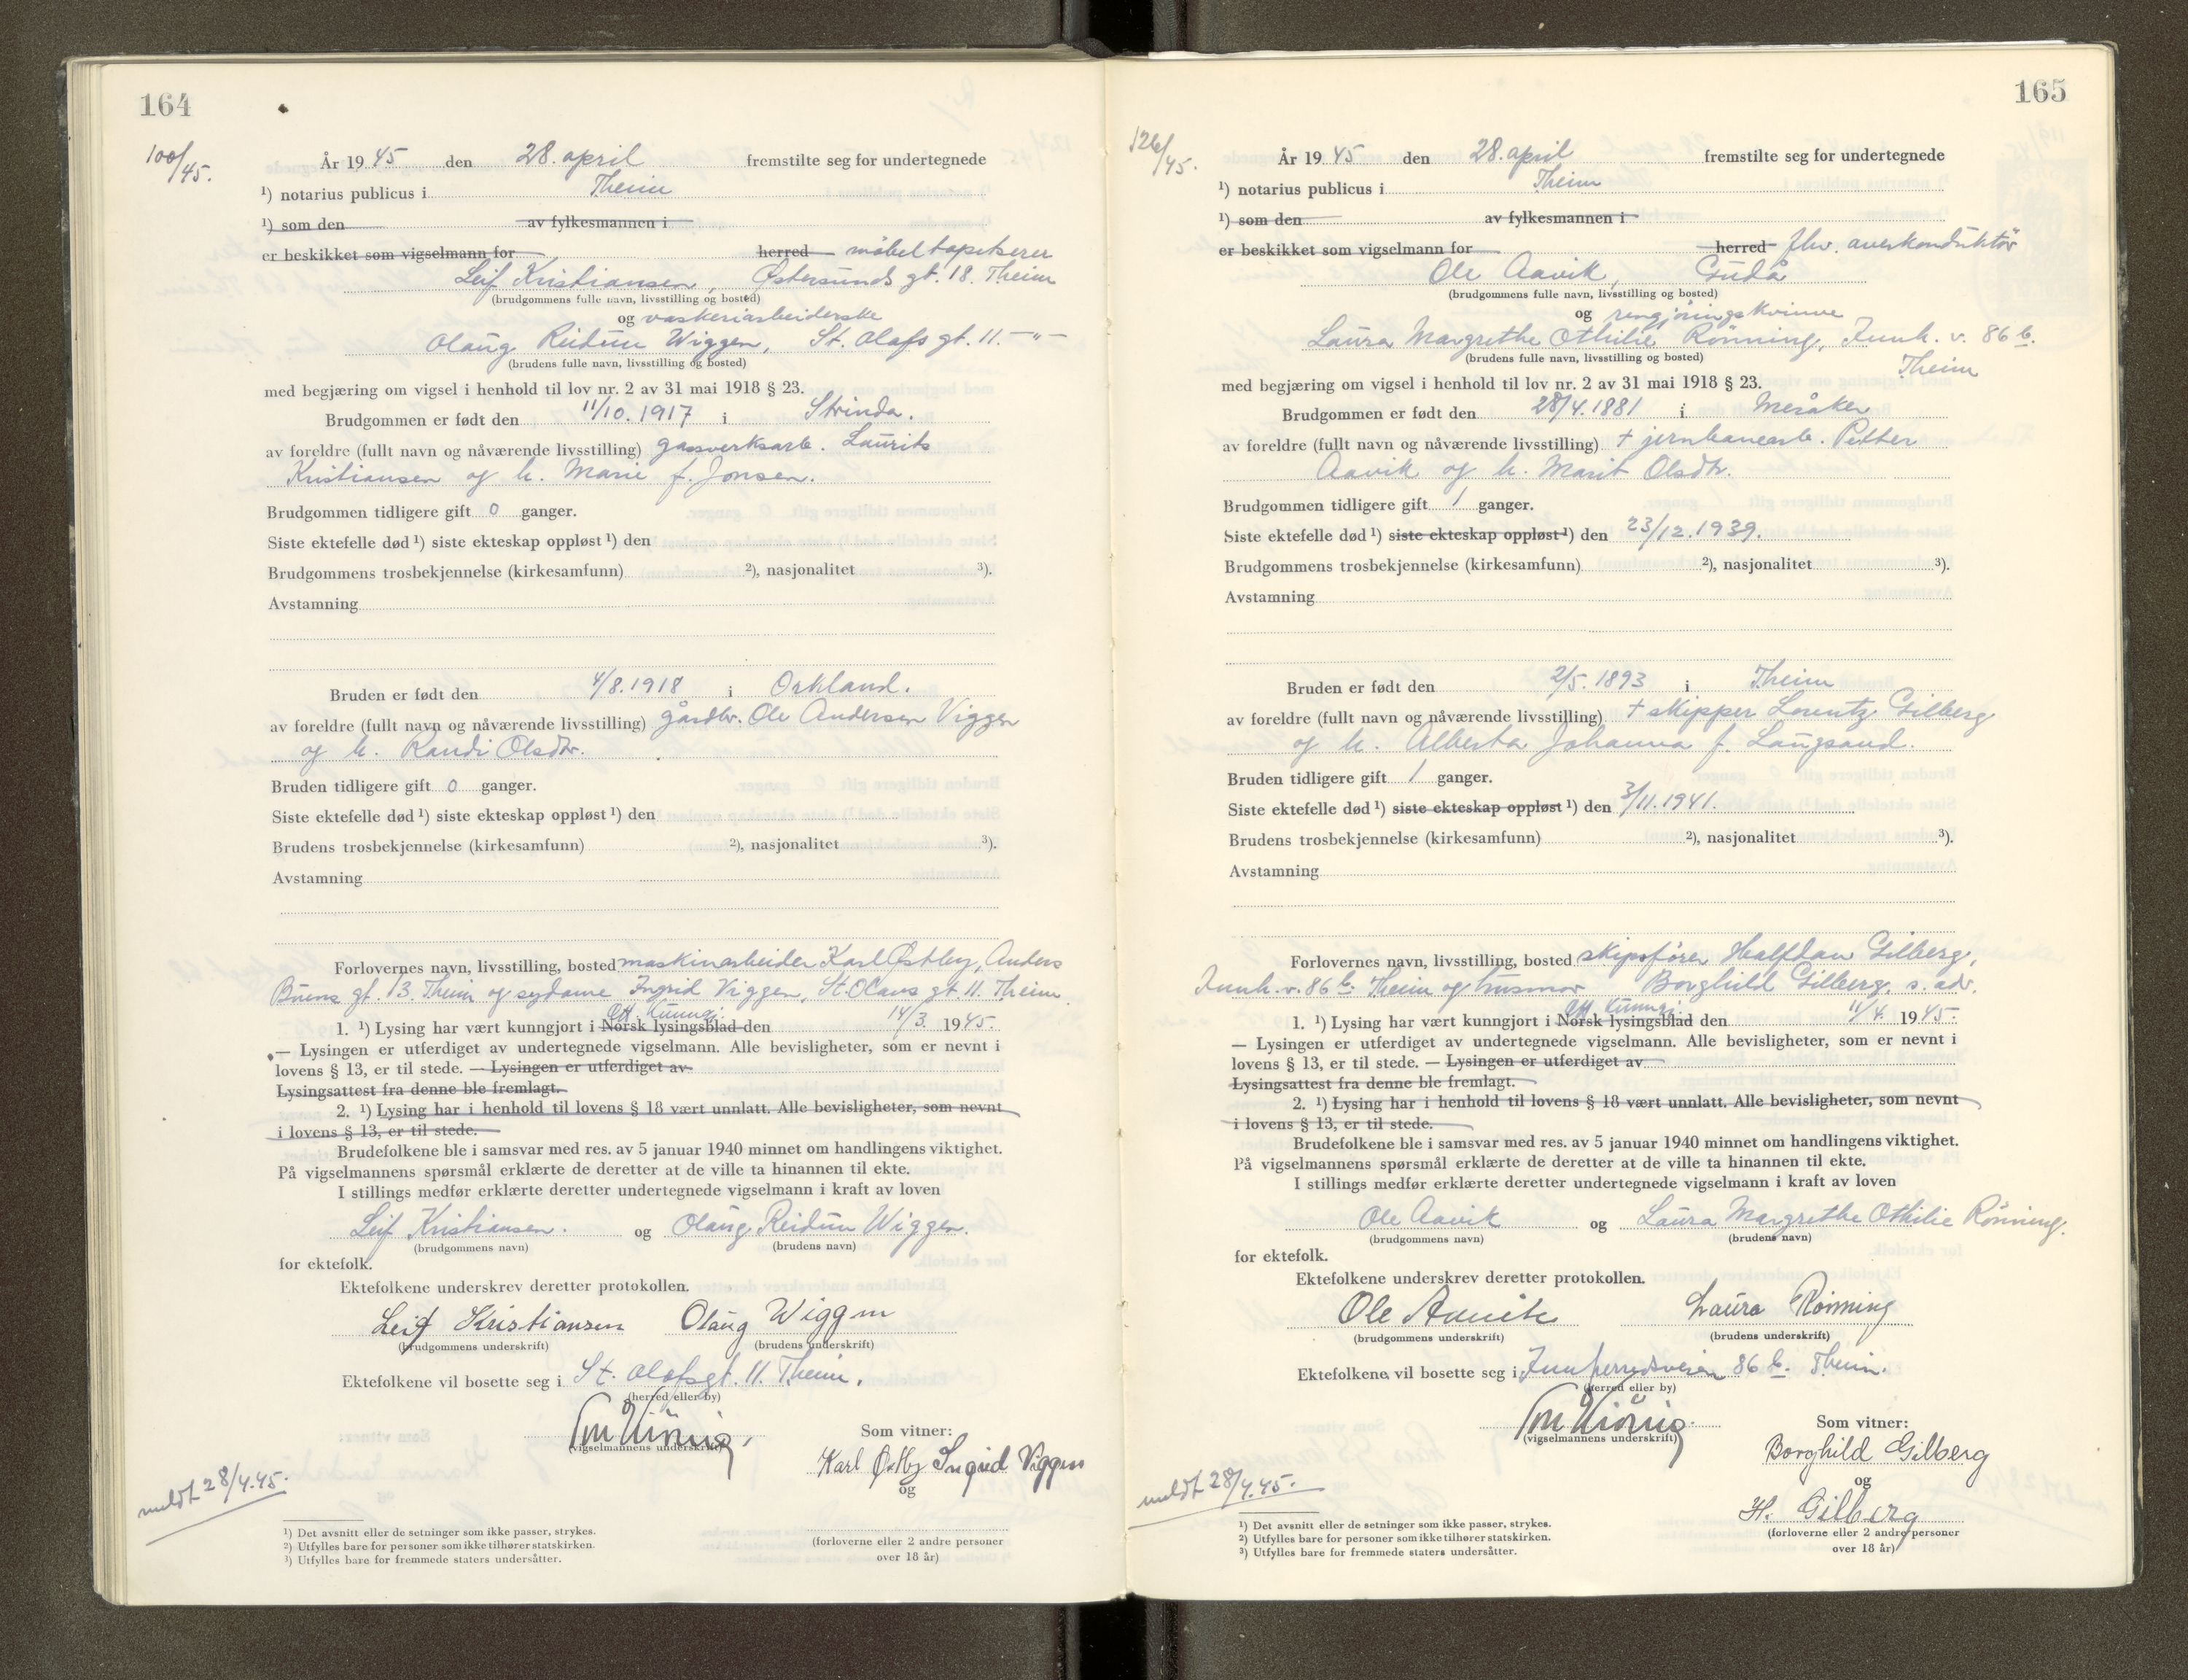 164
100/45.
År 1945 den 28. april fremstilte seg for undertegnede
¹) notarius publicus i Theim
¹) som den av fylkesmannen i
er beskikket som vigselmann for herred møbeltapetserer
Leif Kristiansen, Østersunds gt. 18. Theim
(brudgommens fulle navn, livsstilling og bosted)
og vaskeriarbeiderske
Olaug Reidun Wiggen, St. Olafs gt. 11. —"—
(brudens fulle navn, livsstilling og bosted)
med begjæring om vigsel i henhold til lov nr. 2 av 31 mai 1918 § 23.
Brudgommen er født den 11/10. 1917 i Strinda.
av foreldre (fullt navn og nåværende livsstilling) gassverksarb. Laurits
Kristiansen og h. Marie f. Jonsen.
Brudgommen tidligere gift 0 ganger.
Siste ektefelle død ¹) siste ekteskap oppløst ¹) den
Brudgommens trosbekjennelse (kirkesamfunn) ²), nasjonalitet ³).
Avstamning
Bruden er født den 4/8. 1918 i Orkland.
av foreldre (fullt navn og nåværende livsstilling) gårdbr. Ole Andersen Viggen
og h. Randi Olsdtr.
Bruden tidligere gift 0 ganger.
Siste ektefelle død ¹) siste ekteskap oppløst ¹) den
Brudens trosbekjennelse (kirkesamfunn) ²), nasjonalitet ³).
Avstamning
Forlovernes navn, livsstilling, bosted maskinarbeider Karl Østby, Anders
Buens gt. 13. Theim og sydame Ingrid Viggen, St. Olavs gt. 11. Theim.
off. kunngj.
1. ¹) Lysing har vært kunngjort i Norsk lysingsblad den 14/3. 1945.
— Lysingen er utferdiget av undertegnede vigselmann. Alle bevisligheter, som er nevnt i
lovens § 13, er til stede. — Lysingen er utferdiget av
Lysingsattest fra denne ble fremlagt.
2. ¹) Lysing har i henhold til lovens § 18 vært unnlatt. Alle bevisligheter, som nevnt
i lovens § 13, er til stede.
Brudefolkene ble i samsvar med res. av 5 januar 1940 minnet om handlingens viktighet.
På vigselmannens spørsmål erklærte de deretter at de ville ta hinannen til ekte.
I stillings medfør erklærte deretter undertegnede vigselmann i kraft av loven
Leif Kristiansen. og Olaug Reidun Wiggen.
(brudgommens navn) (brudens navn)
for ektefolk.
Ektefolkene underskrev deretter protokollen.
Leif Kristiansen Olaug Wiggen
(brudgommens underskrift) (brudens underskrift)
Ektefolkene vil bosette seg i St. Olafsgt. 11. Theim.
(herred eller by)
(vigselmannens underskrift)
Som vitner:
Karl Østby Ingrid Viggen
og
meldt 28/4.45.
¹) Det avsnitt eller de setninger som ikke passer, strykes.
²) Utfylles bare for personer som ikke tilhører statskirken.
³) Utfylles bare for fremmede staters undersåtter.
(forloverne eller 2 andre personer
over 18 år)
165
126/45.
År 1945 den 28. april fremstilte seg for undertegnede
¹) notarius publicus i Theim
¹) som den av fylkesmannen i
er beskikket som vigselmann for herred fhv. overkonduktör
Ole Aavik, Gudå
(brudgommens fulle navn, livsstilling og bosted)
og rengjøringskvinne
Laura Margrethe Othilie Rönning, Innh. v. 86 b.
Theim
(brudens fulle navn, livsstilling og bosted)
med begjæring om vigsel i henhold til lov nr. 2 av 31 mai 1918 § 23.
Brudgommen er født den 28/4. 1881 i Meråker
av foreldre (fullt navn og nåværende livsstilling) † jernbanearb. Petter
Aavik og h. Marit Olsdtr.
Brudgommen tidligere gift 1 ganger.
Siste ektefelle død ¹) siste ekteskap oppløst ¹) den 23/12. 1939.
Brudgommens trosbekjennelse (kirkesamfunn) ²), nasjonalitet ³).
Avstamning
Bruden er født den 2/5. 1893 i Theim
av foreldre (fullt navn og nåværende livsstilling) † skipper Lorentz Gilberg
og h. Alberta Johanna f. Laugsand.
Bruden tidligere gift 1 ganger.
Siste ektefelle død ¹) siste ekteskap oppløst ¹) den 3/11. 1941.
Brudens trosbekjennelse (kirkesamfunn) ²), nasjonalitet ³).
Avstamning
Forlovernes navn, livsstilling, bosted skipsfører Halfdan Gilberg,
Innh. v. 86 b. Theim og husmor Borghild Gilberg. s. adr.
off. kunngj.
1. ¹) Lysing har vært kunngjort i Norsk lysingsblad den 11/4. 1945.
— Lysingen er utferdiget av undertegnede vigselmann. Alle bevisligheter, som er nevnt i
lovens § 13, er til stede. — Lysingen er utferdiget av
Lysingsattest fra denne ble fremlagt.
2. ¹) Lysing har i henhold til lovens § 18 vært unnlatt. Alle bevisligheter, som nevnt
i lovens § 13, er til stede.
Brudefolkene ble i samsvar med res. av 5 januar 1940 minnet om handlingens viktighet.
På vigselmannens spørsmål erklærte de deretter at de ville ta hinannen til ekte.
I stillings medfør erklærte deretter undertegnede vigselmann i kraft av loven
Ole Aavik og Laura Margrethe Othilie Rönning.
(brudgommens navn) (brudens navn)
for ektefolk.
Ektefolkene underskrev deretter protokollen.
Ole Aavik Laura Rönning
(brudgommens underskrift) (brudens underskrift)
Ektefolkene vil bosette seg i Innherredsveien 86 b. Theim.
(herred eller by)
(vigselmannens underskrift)
Som vitner:
Borghild Gilberg
og
H. Gilberg
(forloverne eller 2 andre personer
over 18 år)
meldt 28/4.45.
¹) Det avsnitt eller de setninger som ikke passer, strykes.
²) Utfylles bare for personer som ikke tilhører statskirken.
³) Utfylles bare for fremmede staters undersåtter.